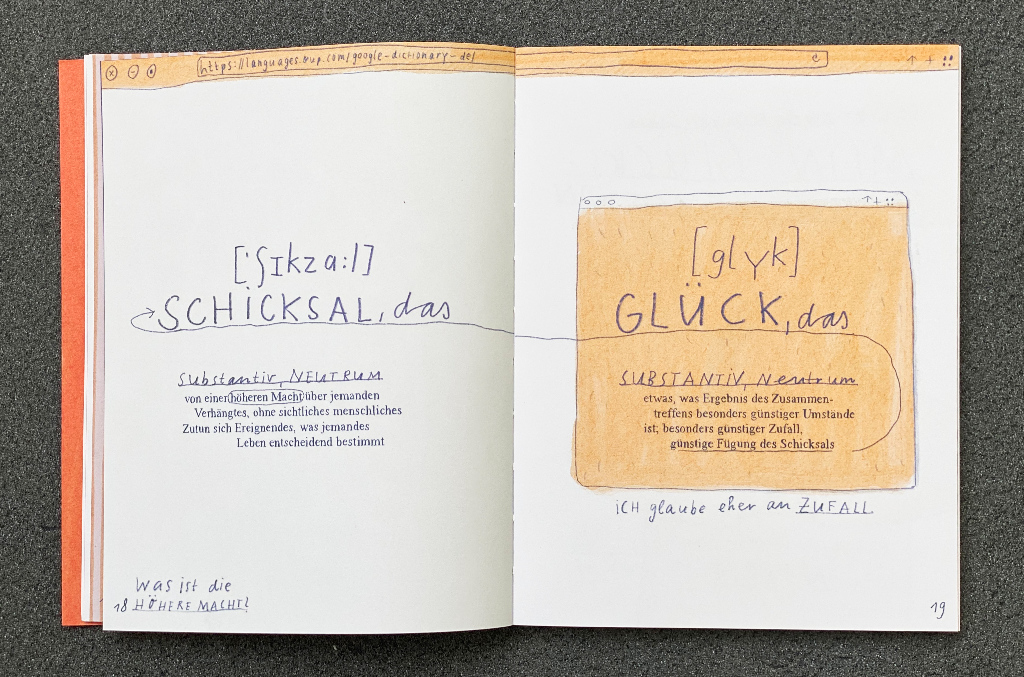 https://languages.oup.com/google-dictionary-de/
[ˈʃɪkzaːl]
SCHICKSAL, das
Substantiv, NEUTRUM
von einer höheren Macht über jemanden
Verhängtes, ohne sichtliches menschliches
Zutun sich Ereignendes, was jemandes
Leben entscheidend bestimmt
Was ist die
HÖHERE MACHT?
18
[glʏk]
GLÜCK, das
SUBSTANTIV, Neutrum
etwas, was Ergebnis des Zusammen-
treffens besonders günstiger Umstände
ist; besonders günstiger Zufall,
günstige Fügung des Schicksals
iCH glaube eher an ZUFALL
19